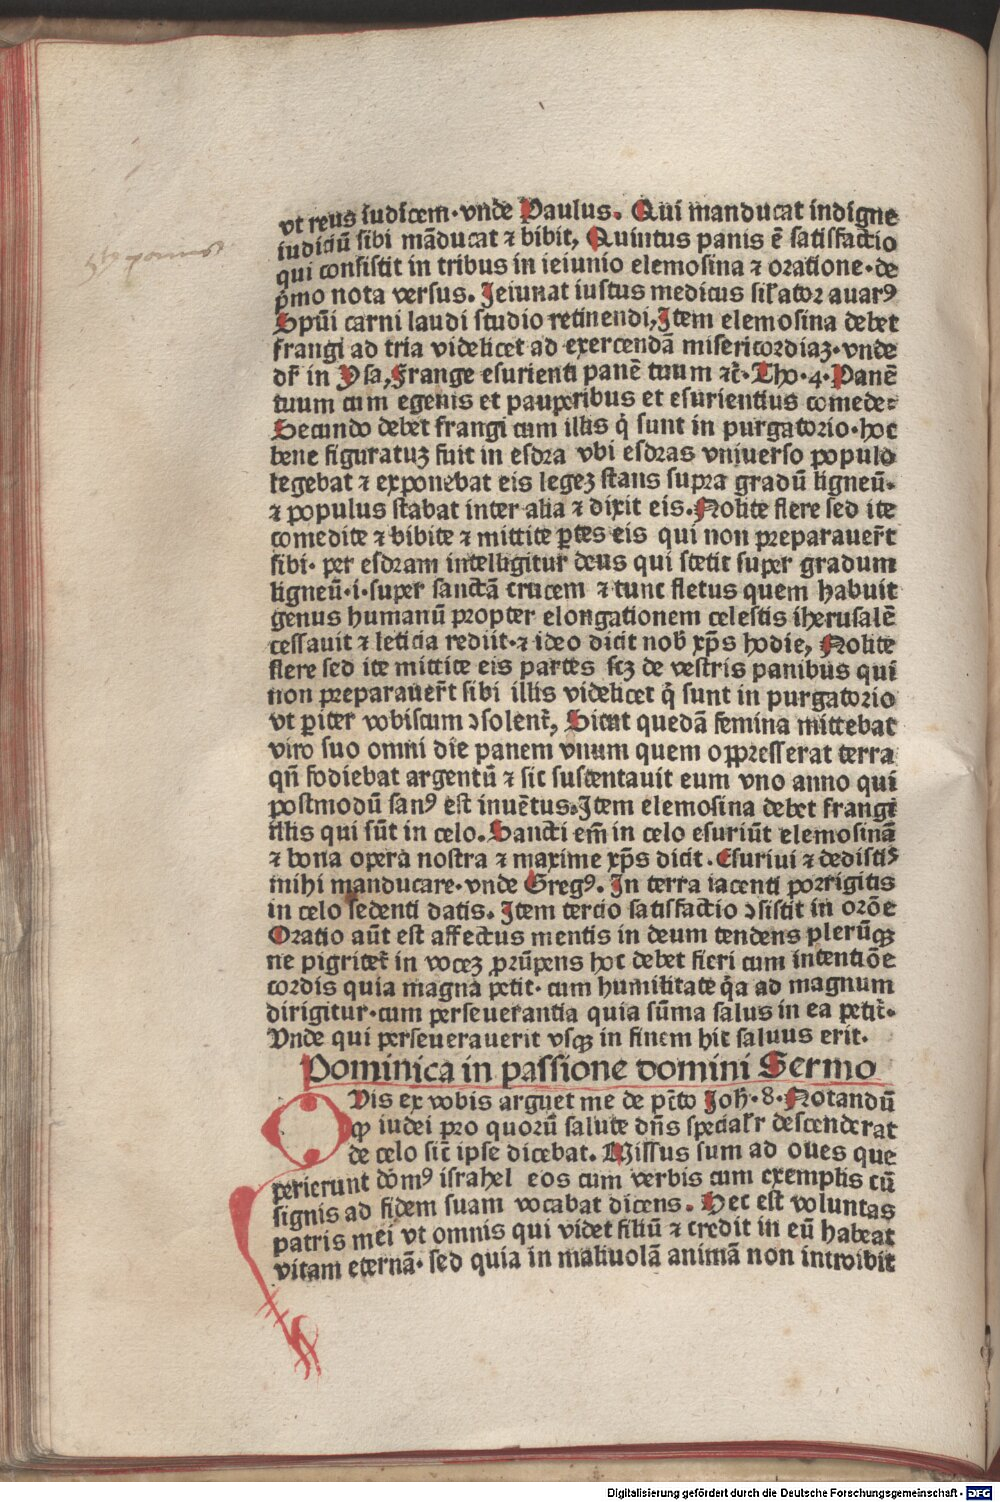 vt reus iudicem·vnde Paulus. Qui manducat indigne
iudiciū sibi māducat ⁊ bibit, Quintus panis ē satisfactio
qui consistit in tribus in ieiunio elemosina ⁊ oratione·de
pͥmo nota versus. Jeiunat iustus medicus silator auarꝰ
Spūi carni laudi studio retinendi, Jtem elemosina debet
frangi ad tria videlicet ad exercendā misericordiaꝫ·vnde
dr̄ in Ysa, Frange esurienti panē tuum ⁊c̄·Tho·4·Panē
tuum cum egenis et pauperibus et esurientius comede:
Secundo debet frangi cum illis q̇ sunt in purgatorio·hoc
bene figuratuꝫ fuit in esdra vbi esdras vniuerso populo
legebat ⁊ exponebat eis legeꝫ stans supra gradū ligneū·
⁊ populus stabat inter alia ⁊ dixit eis·Nolite flere sed ite
comedite ⁊ bibite ⁊ mittite ꝑtes eis qui non preparauer̄t
sibi· per esdram intelligitur deus qui stetit super gradum
ligneū·i·super sanctā crucem ⁊ tunc fletus quem habuit
genus humanū propter elongationem celestis iherusalē
cessauit ⁊ leticia rediit·⁊ ideo dicit nob̄ xp̄s hodie, Nolite
flere sed ite mittite eis partes scꝫ de vestris panibus qui
non preparauer̄t sibi illis videlicet q̇ sunt in purgatorio
vt ꝑiter vobiscum ɔsolent̄, Sicut quedā femina mittebat
viro suo omni die panem vnum quem oppresserat terra
qn̄ fodiebat argentū ⁊ sic sustentauit eum vno anno qui
postmodū sanꝰ est inuētus. Jtem elemosina debet frangi
illis qui sūt in celo. Sancti em̄ in celo esuriūt elemosinā
⁊ bona opera nostra ⁊ maxime xp̄s dicit. Esuriui ⁊ dedistiꝰ
mihi manducare·vnde Gregꝰ. Jn terra iacenti porrigitis
in celo sedenti datis. Jtem tercio satisfactio ɔsistit in orōe
Oratio aūt est affectus mentis in deum tendens plerūqꝫ
ne pigritet̄ in voceꝫ prūpens hoc debet fieri cum intentiōe
cordis quia magna petit· cum humilitate q̄a ad magnum
dirigitur·cum perseuerantia quia sūma salus in ea petit̄·
Vnde qui perseuerauerit vsqꝫ in finem hic saluus erit·
Dominica in passione domini Sermo
QVis ex vobis arguet me de pc̄to Joh̄·8·Notandū
ꝙ iudei pro quorū salute dn̄s specialr̄ descenderat
de celo sic̄ ipse dicebat. Missus sum ad oues que
perierunt dōmꝰ israhel eos cum verbis cum exemplis cū
signis ad fidem suam vocabat dicens. Hec est voluntas
patris mei vt omnis qui videt filiū ⁊ credit in eū habeat
vitam eternā· sed quia in maliuolā animā non introibit
Digitalisierung gefördert durch die Deutsche Forschungsgemeinschaft · DFG